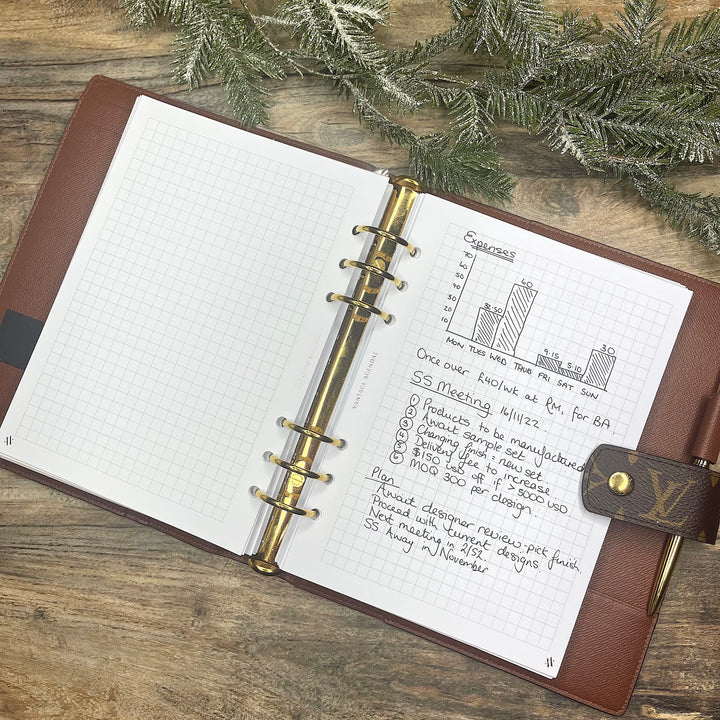 VANTAGE AGENDAS
Expenses
70
60
50
40
30
20
10
60
9.15
5.10
30
MON TUES WED THUR FRI SAT SUN
Once over £40/wk at RM, for BA.
SS Meeting 16/11/22.
1 Products to be manufactured
2 Await sample set
3 Changing finish = new set
4 Delivery fee to increase
5 $150 USD off if > 5000 USD
6 MOQ 300 per design.
Plan
Await designer review - pick finish.
Proceed with current designs.
Next meeting in 2/52.
SS Away in November
LV